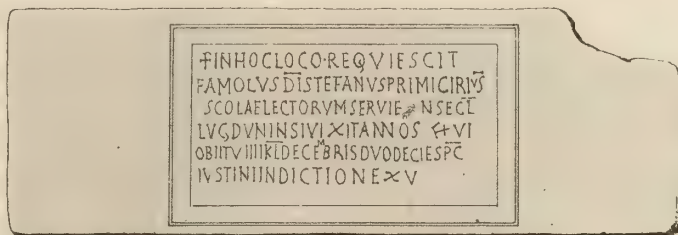 +INHOCLOCO·REQVIESCIT
FAMOLVSDISTEFANVSPRIMICIRIVS
SCOLAELECTORVMSERVIE NSECL
LVGDVNINSIVIXITANNOS LXVI
OBIITVIIIIKLDECEMBRISDVODECIESPC
IVSTINIINDICTIONEXV